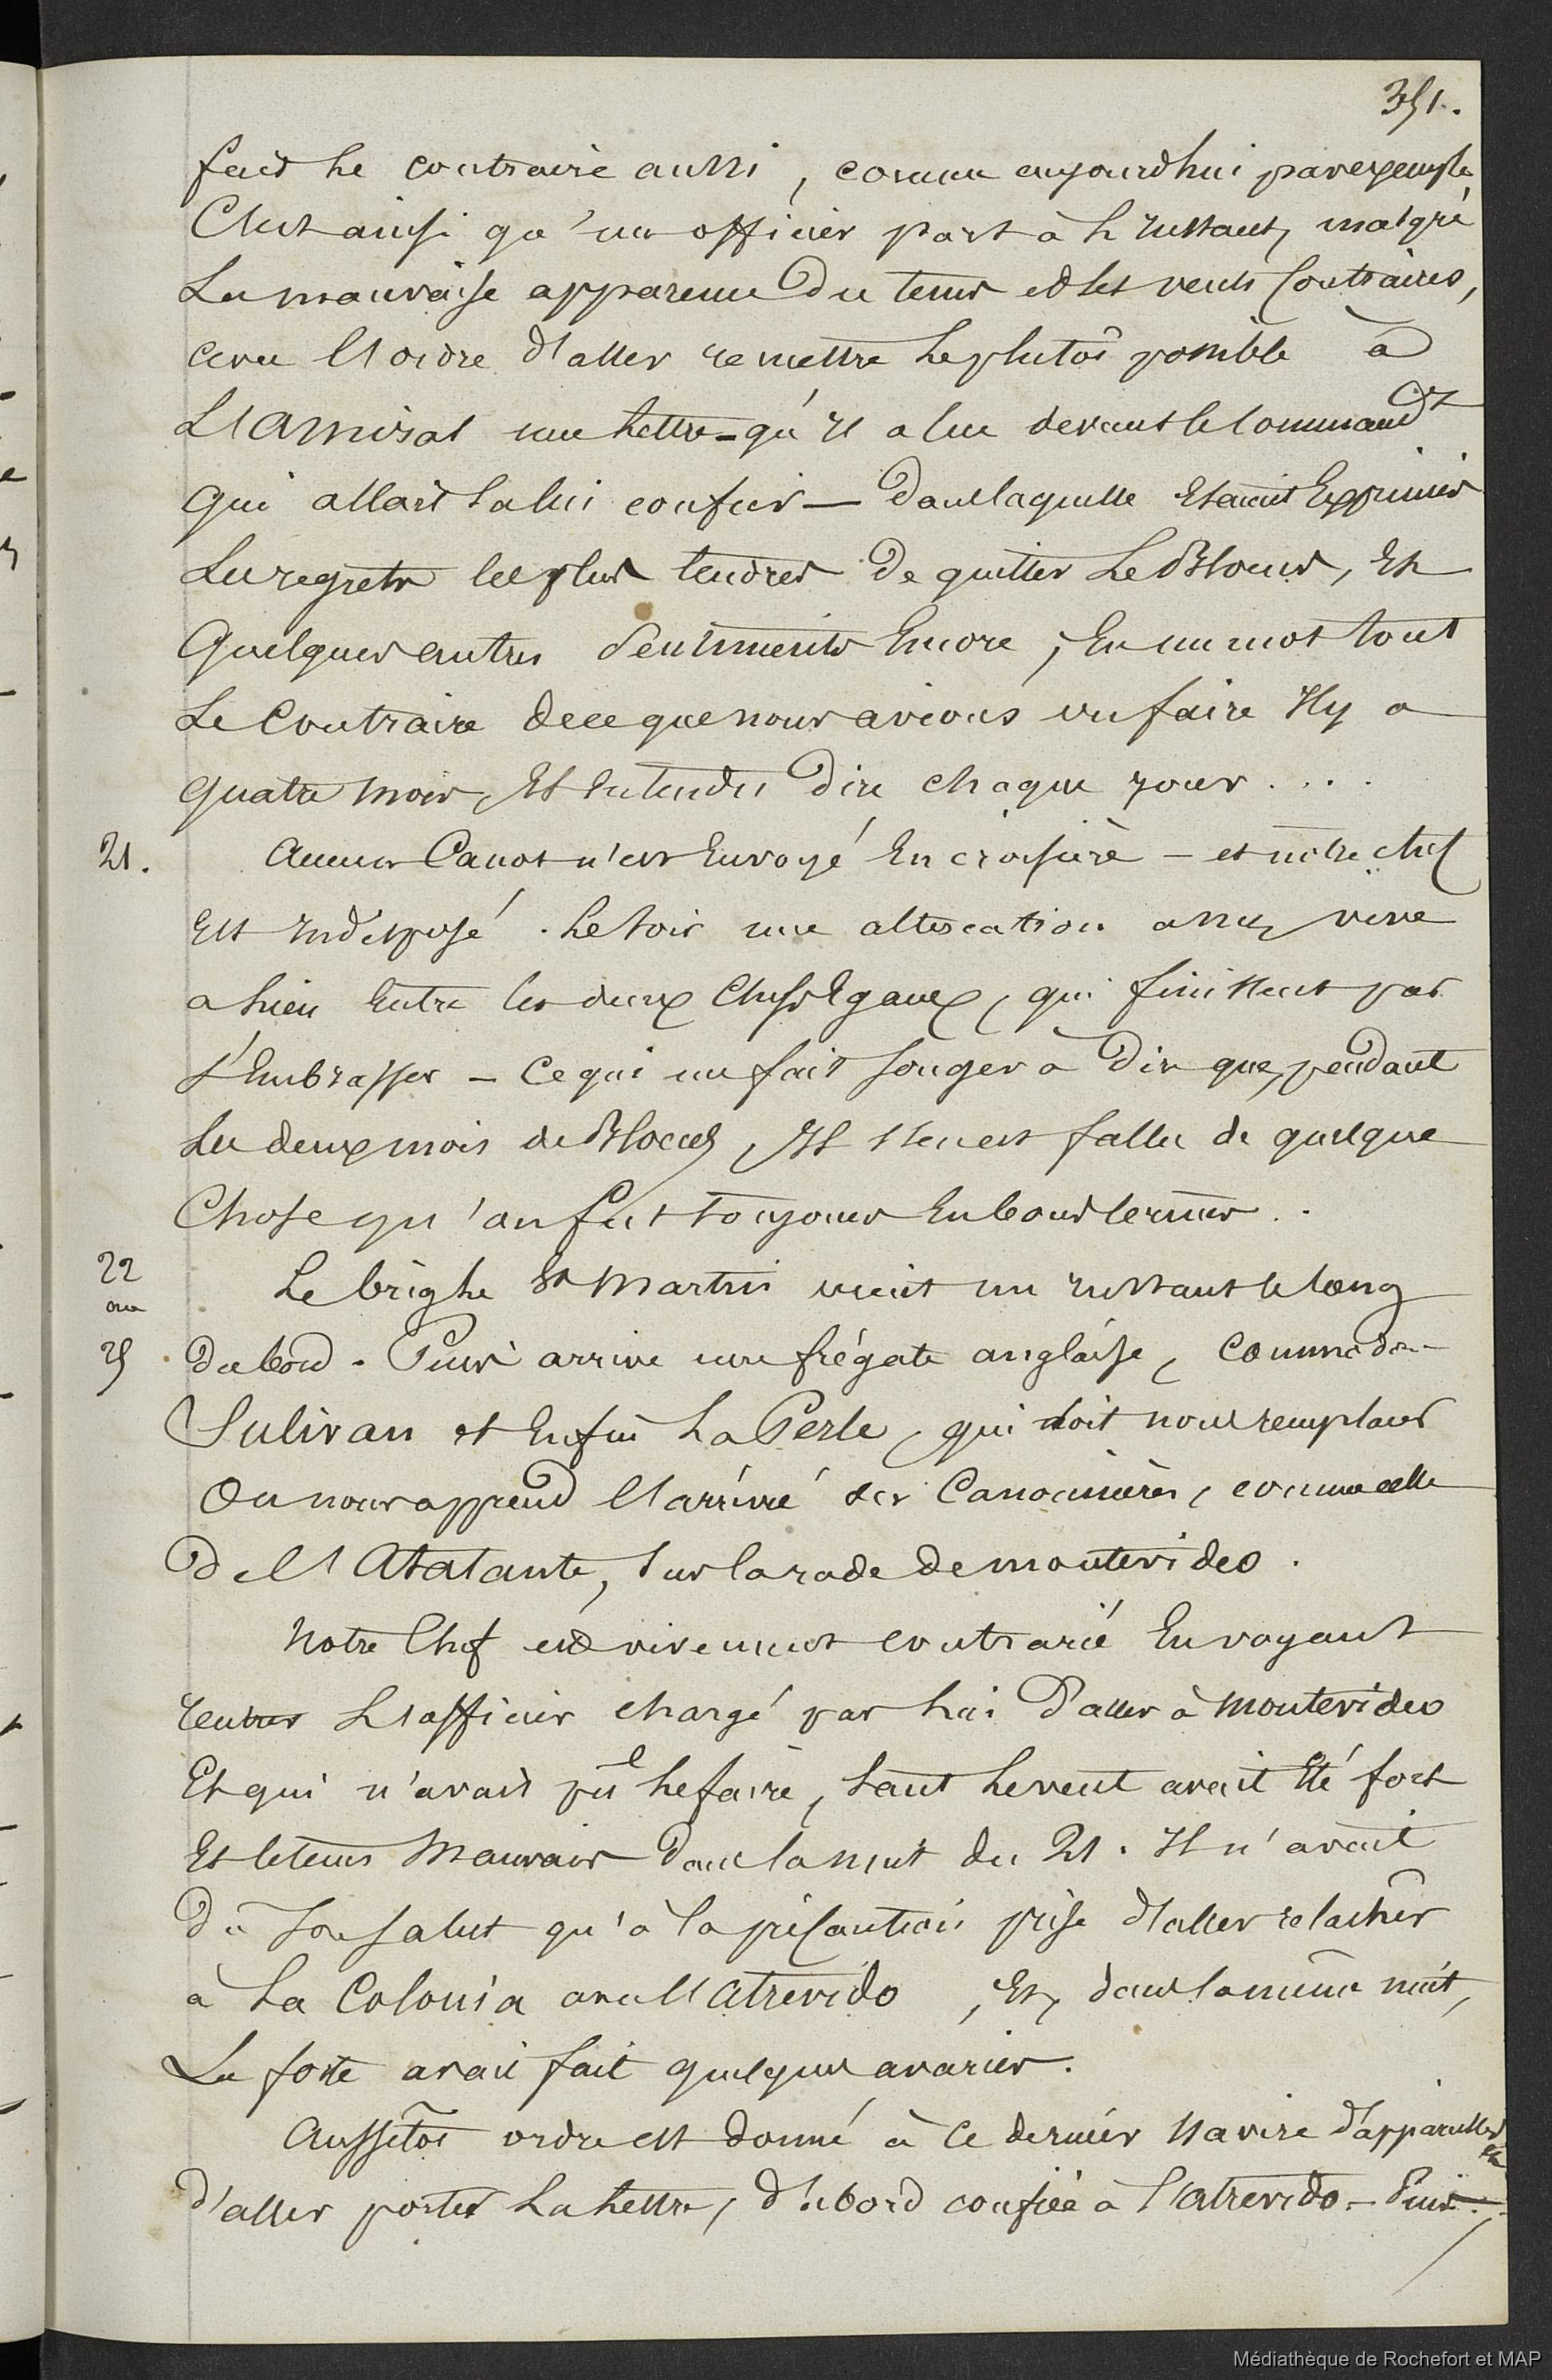 351.
fait le contraire aussi, comme aujourd'hui par exemple
C'est ainsi qu'un officier part à l'instant, malgré
La mauvaise apparence du tems et les vents contraires,
avec l'ordre d'aller remettre le plutôt possible à
L'amiral une lettre qu'il a lue devant le Command^t
qui allait la lui confier — dans laquelle Etaient Exprimés
Les regrets les plus tendres de quitter Le Blocus, Et
Quelques autres sentiments Encore, En un mot tout
Le Contraire de ce que nous avions vu faire Il y a
quatre mois, Et Entendu dire chaque jour....
21. Aucun Canot n'est Envoyé En croisière – et nôtre chef
Est Indisposé. Le soir une altercation assez vive
a lieu Entre les deux Chefs Egaux, qui finissent par
s'Embrasser – ce qui me fait songer à dire que, pendant
Les deux mois de Blocus, Il s'en est fallu de quelque
Chose qu'on fut toujours En bons termes..
22
au
25
Le brigh le S^t Martin vient un instant le long
du bord. Puis arrive une frégate anglaise, Commodore
Sulivan et Enfin La Perle, qui doit nous remplacer
On nous apprend l'arrivée des Canonnières, comme celle
De l'Atalante, sur la rade de montevideo.
Notre Chef est vivement contrarié En voyant
rentrer L'officier chargé par lui d'aller à Montevideo
Et qui n'avait pu le faire, tant le vent avait Eté fort
Et le tems Mauvais dans la nuit du 21. Il n'avait
dû son salut qu'à la précaution prise d'aller relâcher
à La Colonia avec l'atrevido, Et, dans la même nuit,
La forte avait fait quelques avaries.
Aussitôt ordre est donné à ce dernier Navire d'appareiller
et
d'aller porter La Lettre, d'abord confiée à l'atrevido – Puis
Médiathèque de Rochefort et MAP